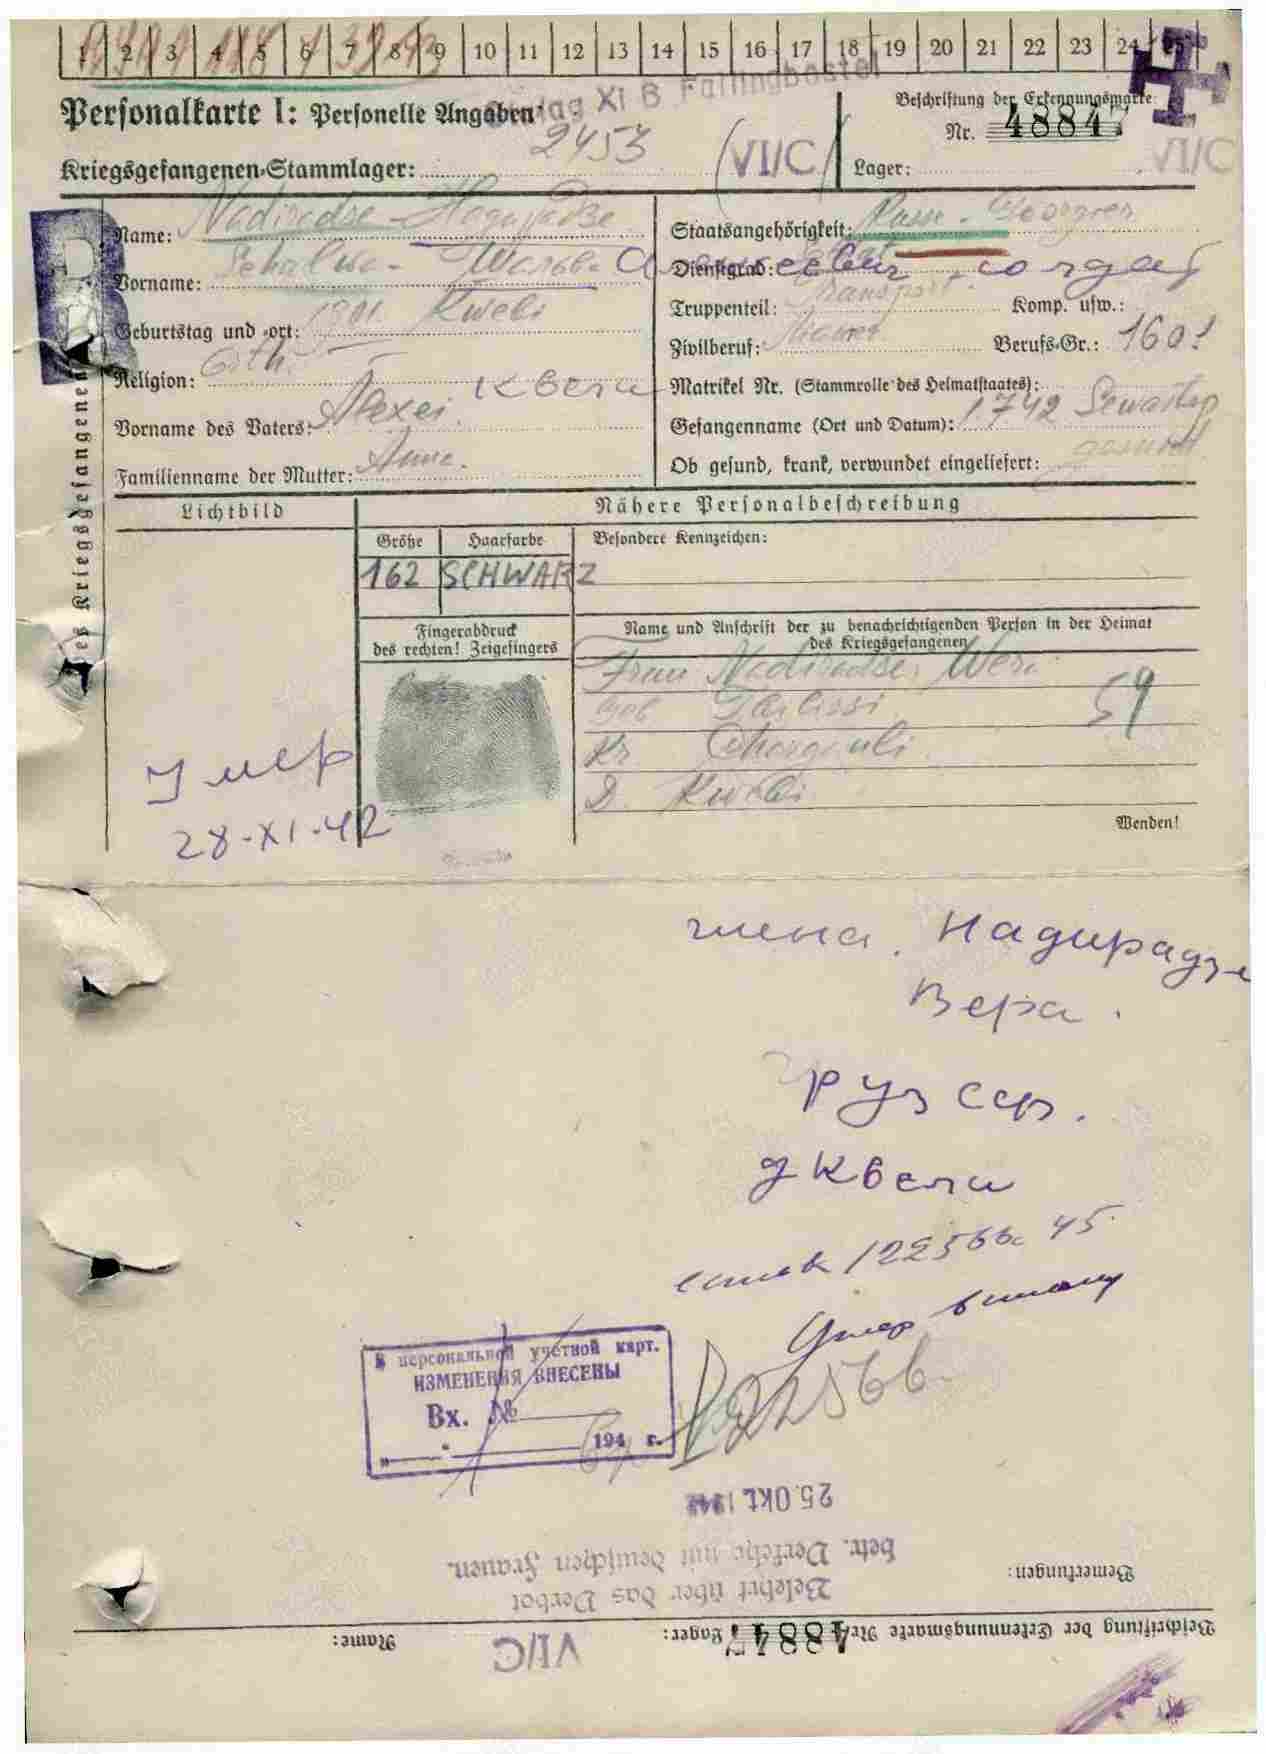 1 2 3 4 5 6 7 8 9 10 11 12 13 14 15 16 17 18 19 20 21 22 23 24 25
Stalag XI B Fallingbostel
Personalkarte I: Personelle Angaben
Beschriftung der Erkennungsmarke
Nr. 48847
2453
Kriegsgefangenen-Stammlager: (VI/C)
Lager: VI/C
Name: Nadiradse - Надирадзе
Staatsangehörigkeit: Russe - Georgier
Vorname: Schalwa - Шалва
Dienstgrad:
Truppenteil: Transport. Komp. usw.:
Geburtstag und -ort: 1901. Kweli
Zivilberuf: Berufs-Gr.: 1601
Religion: Orth.
Квели
Matrikel Nr. (Stammrolle des Heimatstaates):
Vorname des Vaters: Alexei.
Gefangenname (Ort und Datum): 1.7.42 Sewastop
Familienname der Mutter: Anna.
Ob gesund, krank, verwundet eingeliefert: gesund.
des Kriegsgefangenen
Lichtbild
Nähere Personalbeschreibung
Größe Haarfarbe Besondere Kennzeichen:
162 SCHWARZ
Fingerabdruck
des rechten! Zeigefingers
Name und Anschrift der zu benachrichtigenden Person in der Heimat
des Kriegsgefangenen
Frau Nadiradse, Wera
59
D. Kweli
Wenden!
Умер
28-XI-42
жена. Надирадзе
Вера.
Груз сср.
д Квели
список 12256б. 45
В персональной учетной карт.
ИЗМЕНЕНИЯ ВНЕСЕНЫ
Вх. №
194 г.
25. OKT. 1942
betr. Verkehr mit deutschen Frauen.
Belehrt über das Verbot
Bemerkungen:
Beschriftung der Erkennungsmarke Nr. 48847 Lager: VI/C Name: